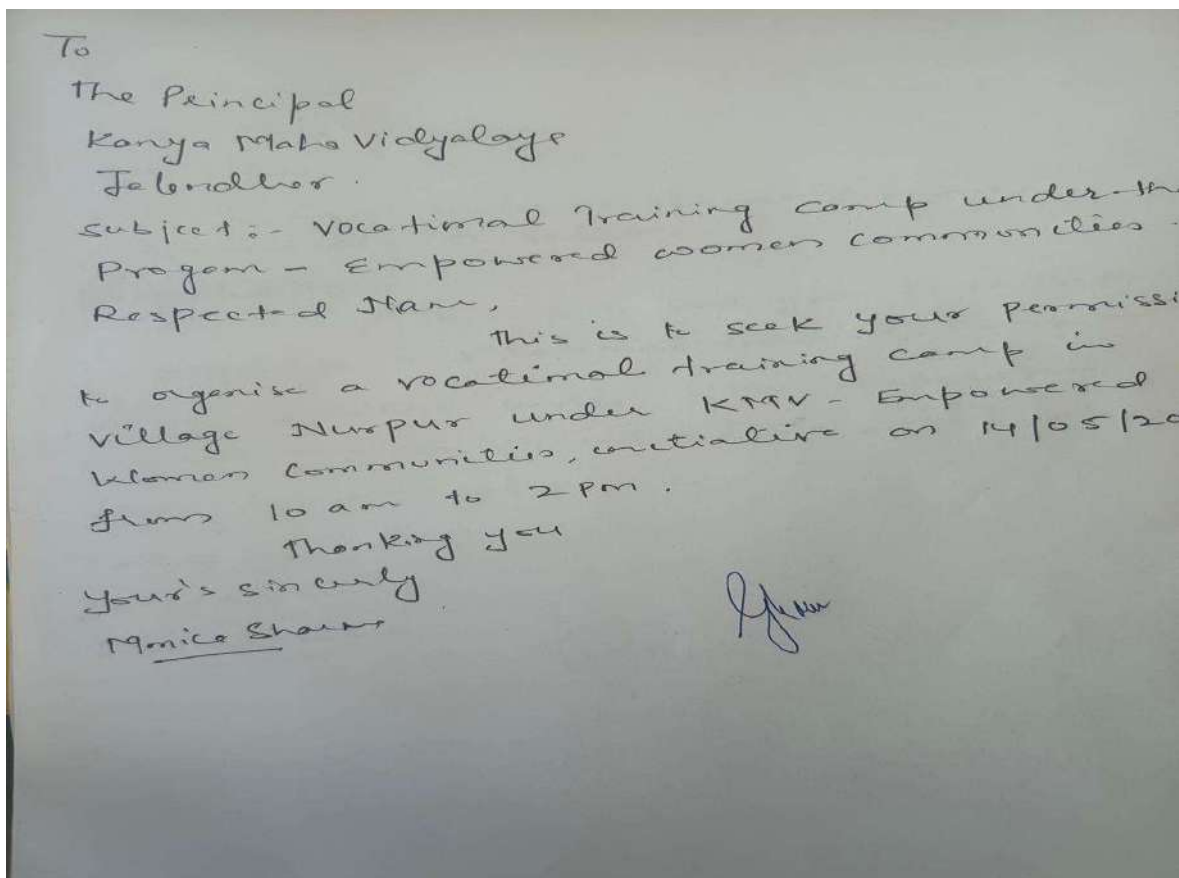 To
The Principal
Kanya Maha Vidyalaya
Jalandhar.
Subject:- Vocational Training Camp under th
Progam - Empowered women communities.
Respected Mam,
This is to seek your permissi
to organise a vocational training camp in
village Nurpur under KMV - Empowered
Women Communities, initiative on 14/05/20
from 10 am to 2 pm.
Thanking you
Your's sincerly
Monica Sharma